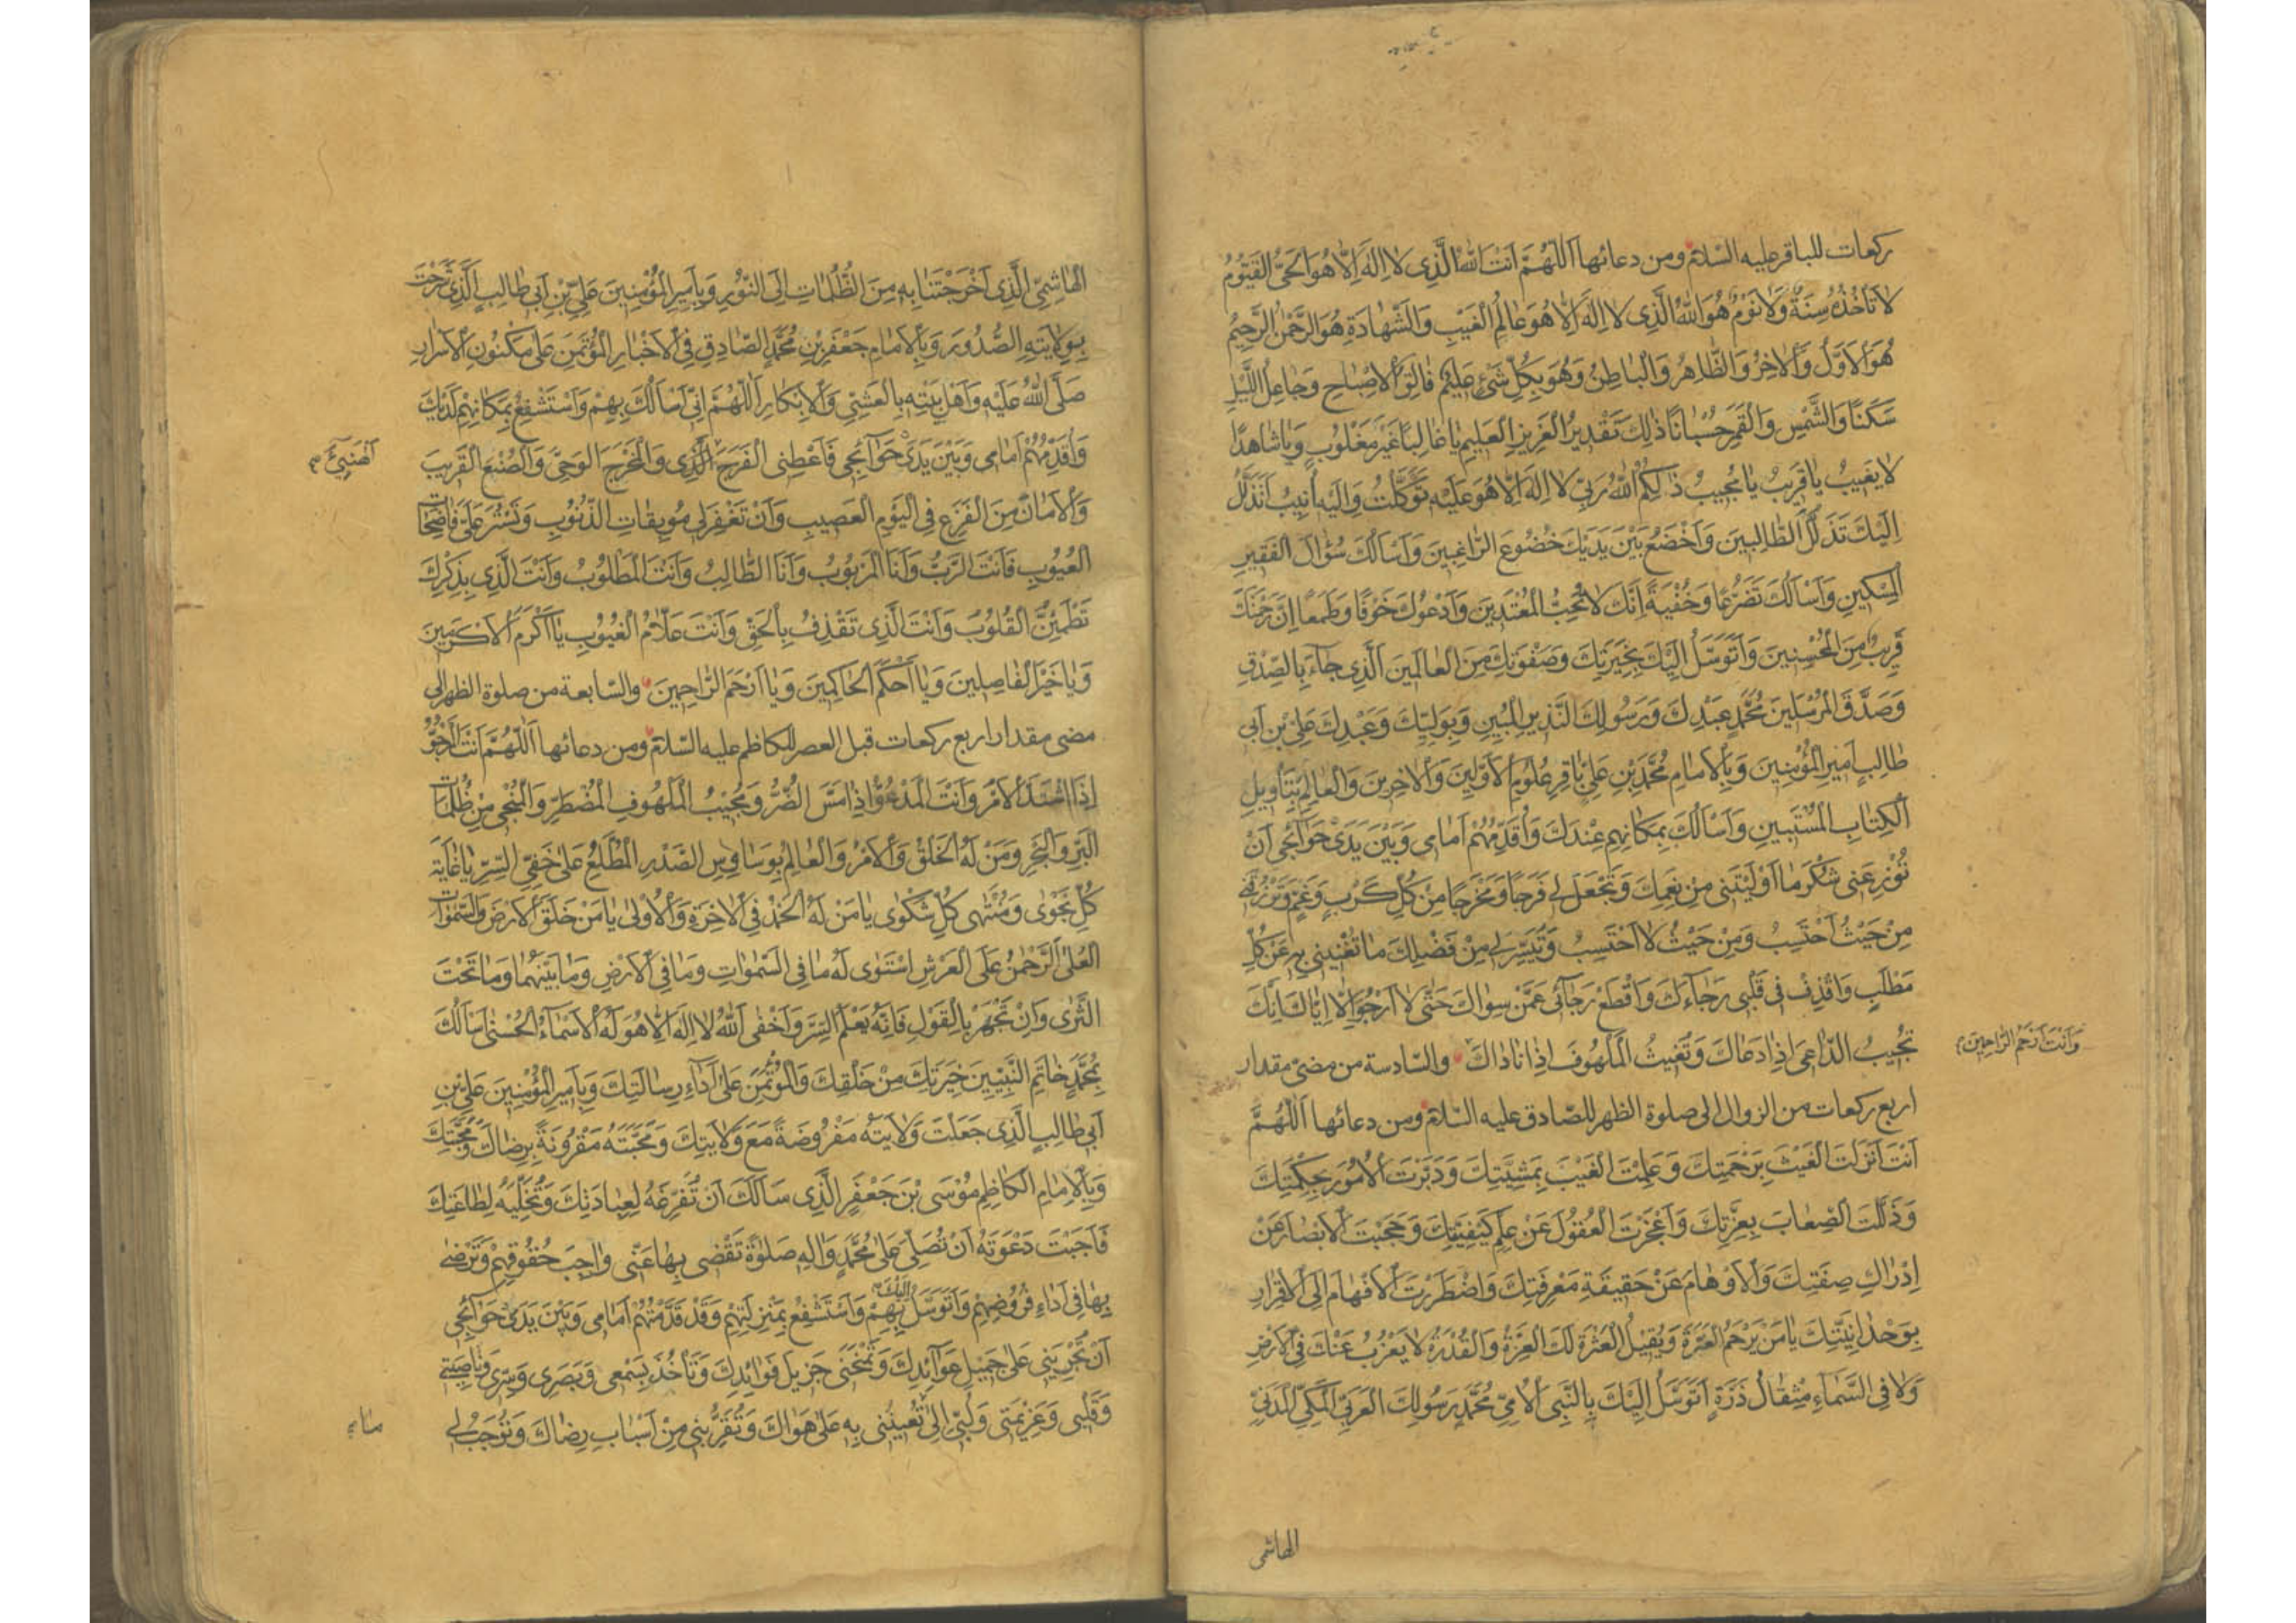 ركعات للباقر عليه السلام ومن دعائها اَللّٰهُمَّ اَنْتَ اللّٰهُ الَّذِی لا اِلٰهَ اِلّا هُوَ الْحَیُّ الْقَیُّومُ
لا تَأْخُذُهُ سِنَةٌ وَلا نَوْمٌ هُوَ اللّٰهُ الَّذِی لا اِلٰهَ اِلّا هُوَ عالِمُ الْغَیْبِ وَالشَّهادَةِ هُوَ الرَّحْمٰنُ الرَّحِیمُ
هُوَ الْاَوَّلُ وَالْاٰخِرُ وَالظّاهِرُ وَالْباطِنُ وَهُوَ بِكُلِّ شَیْءٍ عَلِیمٌ فالِقُ الْاِصْباحِ وَجاعِلُ اللَّیْلِ
سَكَنًا وَالشَّمْسِ وَالْقَمَرِ حُسْبانًا ذٰلِكَ تَقْدِیرُ الْعَزِیزِ الْعَلِیمِ یا غالِبًا غَیْرَ مَغْلُوبٍ وَیا شاهِدًا
لا یَغِیبُ یا قَرِیبُ یا مُجِیبُ ذٰلِكُمُ اللّٰهُ رَبِّی لا اِلٰهَ اِلّا هُوَ عَلَیْهِ تَوَكَّلْتُ وَاِلَیْهِ اُنِیبُ اَتَذَلَّلُ
اِلَیْكَ تَذَلُّلَ الطّالِبِینَ وَاَخْضَعُ بَیْنَ یَدَیْكَ خُضُوعَ الرّاغِبِینَ وَاَسْاَلُكَ سُؤالَ الْفَقِیرِ
الْمِسْكِینِ وَاَسْاَلُكَ تَضَرُّعًا وَخُفْیَةً اِنَّكَ لا تُحِبُّ الْمُعْتَدِینَ وَاَدْعُوكَ خَوْفًا وَطَمَعًا اِنَّ رَحْمَتَكَ
قَرِیبٌ مِنَ الْمُحْسِنِینَ وَاَتَوَسَّلُ اِلَیْكَ بِخِیَرَتِكَ وَصَفْوَتِكَ مِنَ الْعالَمِینَ الَّذِی جاءَ بِالصِّدْقِ
وَصَدَّقَ الْمُرْسَلِینَ مُحَمَّدٍ عَبْدِكَ وَرَسُولِكَ النَّذِیرِ الْمُبِینِ وَبِوَلِیِّكَ وَعَبْدِكَ عَلِیِّ بْنِ اَبِی
طالِبٍ اَمِیرِ الْمُؤْمِنِینَ وَبِالْاِمامِ مُحَمَّدِ بْنِ عَلِیٍّ باقِرِ عُلُومِ الْاَوَّلِینَ وَالْاٰخِرِینَ وَالْعالِمِ بِتَأْوِیلِ
الْكِتابِ الْمُسْتَبِینِ وَاَسْاَلُكَ بِمَكانِهِمْ عِنْدَكَ وَاُقَدِّمُهُمْ اَمامِی وَبَیْنَ یَدَیْ حَوائِجِی اَنْ
تُوزِعَنِی شُكْرَ ما اَوْلَیْتَنِی مِنْ نِعَمِكَ وَتَجْعَلَ لِی فَرَجًا وَمَخْرَجًا مِنْ كُلِّ كَرْبٍ وَغَمٍّ وَتَرْزُقَنِی
مِنْ حَیْثُ اَحْتَسِبُ وَمِنْ حَیْثُ لا اَحْتَسِبُ وَتُیَسِّرَ لِی مِنْ فَضْلِكَ ما تُغْنِینِی بِهِ عَنْ كُلِّ
مَطْلَبٍ وَاقْذِفْ فِی قَلْبِی رَجاءَكَ وَاقْطَعْ رَجائِی عَمَّنْ سِواكَ حَتّٰی لا اَرْجُوَ اِلّا اِیّاكَ اِنَّكَ
تُجِیبُ الدّاعِیَ اِذا دَعاكَ وَتُغِیثُ الْمَلْهُوفَ اِذا ناداكَ والسّادسة من مضیّ مقدار
وَاَنْتَ اَرْحَمُ الرّاحِمِینَ
اربع ركعات من الزوال الی صلوة الظهر للصّادق علیه السّلام ومن دعائها اَللّٰهُمَّ
اَنْتَ اَنْزَلْتَ الْغَیْثَ بِرَحْمَتِكَ وَعَلِمْتَ الْغَیْبَ بِمَشِیَّتِكَ وَدَبَّرْتَ الْاُمُورَ بِحِكْمَتِكَ
وَذَلَّلْتَ الصِّعابَ بِعِزَّتِكَ وَاَعْجَزْتَ الْعُقُولَ عَنْ عِلْمِ كَیْفِیَّتِكَ وَحَجَبْتَ الْاَبْصارَ عَنْ
اِدْراكِ صِفَتِكَ وَالْاَوْهامَ عَنْ حَقِیقَةِ مَعْرِفَتِكَ وَاضْطَرَرْتَ الْاَفْهامَ اِلَی الْاِقْرارِ
بِوَحْدانِیَّتِكَ یا مَنْ یَرْحَمُ الْعَبْرَةَ وَیُقِیلُ الْعَثْرَةَ لَكَ الْعِزَّةُ وَالْقُدْرَةُ لا یَعْزُبُ عَنْكَ فِی الْاَرْضِ
وَلا فِی السَّماءِ مِثْقالُ ذَرَّةٍ اَتَوَسَّلُ اِلَیْكَ بِالنَّبِیِّ الْاُمِّیِّ مُحَمَّدٍ رَسُولِكَ الْعَرَبِیِّ الْمَكِّیِّ الْمَدَنِیِّ
الهاشمی
الْهاشِمِیِّ الَّذِی اَخْرَجْتَنا بِهِ مِنَ الظُّلُماتِ اِلَی النُّورِ وَبِاَمِیرِ الْمُؤْمِنِینَ عَلِیِّ بْنِ اَبِی طالِبٍ الَّذِی شَرَحْتَ
بِوِلایَتِهِ الصُّدُورَ وَبِالْاِمامِ جَعْفَرِ بْنِ مُحَمَّدٍ الصّادِقِ فِی الْاَخْبارِ الْمُؤْتَمَنِ عَلٰی مَكْنُونِ الْاَسْرارِ
صَلَّی اللّٰهُ عَلَیْهِ وَاَهْلِ بَیْتِهِ بِالْعَشِیِّ وَالْاِبْكارِ اَللّٰهُمَّ اِنِّی اَسْاَلُكَ بِهِمْ وَاَسْتَشْفِعُ بِمَكانِهِمْ لَدَیْكَ
وَاُقَدِّمُهُمْ اَمامِی وَبَیْنَ یَدَیْ حَوائِجِی فَاَعْطِنِی الْفَرَجَ الَّذِی وَالْمَخْرَجَ الْوَحِیَّ وَالصُّنْعَ الْقَرِیبَ
وَالْاَمانَ مِنَ الْفَزَعِ فِی الْیَوْمِ الْعَصِیبِ وَاَنْ تَغْفِرَ لِی مُوبِقاتِ الذُّنُوبِ وَتَسْتُرَ عَلَیَّ فاضِحاتِ
الْعُیُوبِ فَاَنْتَ الرَّبُّ وَاَنَا الْمَرْبُوبُ وَاَنَا الطّالِبُ وَاَنْتَ الْمَطْلُوبُ وَاَنْتَ الَّذِی بِذِكْرِكَ
تَطْمَئِنُّ الْقُلُوبُ وَاَنْتَ الَّذِی تَقْذِفُ بِالْحَقِّ وَاَنْتَ عَلّامُ الْغُیُوبِ یا اَكْرَمَ الْاَكْرَمِینَ
وَیا خَیْرَ الْفاصِلِینَ وَیا اَحْكَمَ الْحاكِمِینَ وَیا اَرْحَمَ الرّاحِمِینَ والسّابعة من صلوة الظهر الی
مضی مقدار اربع ركعات قبل العصر للكاظم علیه السّلام ومن دعائها اَللّٰهُمَّ اَنْتَ الْمَرْجُوُّ
اِذَا اشْتَدَّ الْاَمْرُ وَاَنْتَ الْمَدْعُوُّ اِذا مَسَّ الضُّرُّ وَمُجِیبُ الْمَلْهُوفِ الْمُضْطَرِّ وَالْمُنْجِی مِنْ ظُلُماتِ
الْبَرِّ وَالْبَحْرِ وَمَنْ لَهُ الْخَلْقُ وَالْاَمْرُ وَالْعالِمُ بِوَساوِسِ الصَّدْرِ الْمُطَّلِعُ عَلٰی خَفِیِّ السِّرِّ یا غایَةَ
كُلِّ نَجْوٰی وَمُنْتَهٰی كُلِّ شَكْوٰی یا مَنْ لَهُ الْحَمْدُ فِی الْاٰخِرَةِ وَالْاُولٰی یا مَنْ خَلَقَ الْاَرْضَ وَالسَّمٰواتِ
الْعُلٰی الرَّحْمٰنُ عَلَی الْعَرْشِ اسْتَوٰی لَهُ ما فِی السَّمٰواتِ وَما فِی الْاَرْضِ وَما بَیْنَهُما وَما تَحْتَ
الثَّرٰی وَاِنْ تَجْهَرْ بِالْقَوْلِ فَاِنَّهُ یَعْلَمُ السِّرَّ وَاَخْفٰی اَللّٰهُ لا اِلٰهَ اِلّا هُوَ لَهُ الْاَسْماءُ الْحُسْنٰی اَسْاَلُكَ
بِمُحَمَّدٍ خاتَمِ النَّبِیِّینَ خِیَرَتِكَ مِنْ خَلْقِكَ وَالْمُؤْتَمَنِ عَلٰی اَداءِ رِسالَتِكَ وَبِاَمِیرِ الْمُؤْمِنِینَ عَلِیِّ بْنِ
اَبِی طالِبٍ الَّذِی جَعَلْتَ وَلایَتَهُ مَفْرُوضَةً مَعَ وَلایَتِكَ وَمَحَبَّتَهُ مَقْرُونَةً بِرِضاكَ وَمَحَبَّتِكَ
وَبِالْاِمامِ الْكاظِمِ مُوسَی بْنِ جَعْفَرٍ الَّذِی سَاَلَكَ اَنْ تُفَرِّغَهُ لِعِبادَتِكَ وَتُخَلِّیَهُ لِطاعَتِكَ
فَاَجَبْتَ دَعْوَتَهُ اَنْ تُصَلِّیَ عَلٰی مُحَمَّدٍ وَاٰلِهِ صَلٰوةً تَقْضِی بِها عَنِّی واجِبَ حُقُوقِهِمْ وَتَرْضٰی
بِها فِی اَداءِ فُرُوضِهِمْ وَاَتَوَسَّلُ اِلَیْكَ بِهِمْ وَاَسْتَشْفِعُ بِمَنْزِلَتِهِمْ وَقَدْ قَدَّمْتُهُمْ اَمامِی وَبَیْنَ یَدَیْ حَوائِجِی
اَنْ تُجْرِیَنِی عَلٰی جَمِیلِ عَوائِدِكَ وَتَمْنَحَنِی جَزِیلَ فَوائِدِكَ وَتَأْخُذَ بِسَمْعِی وَبَصَرِی وَسِرِّی وَناصِیَتِی
وَقَلْبِی وَعَزِیمَتِی وَلُبِّی اِلٰی تُعِینُنِی بِهِ عَلٰی هَواكَ وَتُقَرِّبُنِی مِنْ اَسْبابِ رِضاكَ وَتُوجِبُ لِی